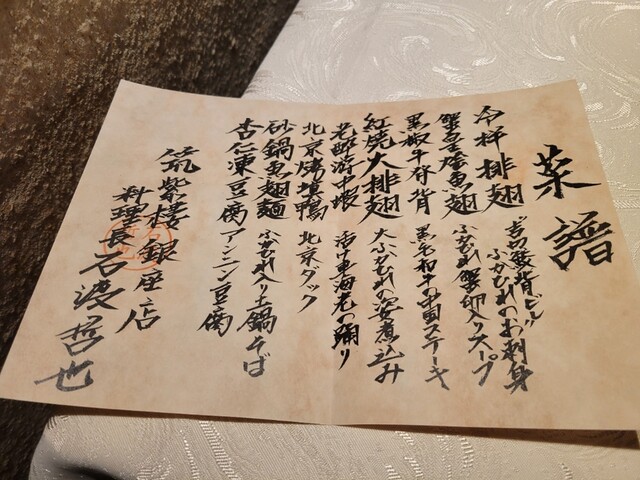 菜譜
冷拌排翅 吉切鮫背ビレ
ふかひれのお刺身
蟹皇燴魚翅 ふかひれ蟹卵入りスープ
黒椒牛脊背 黒毛和牛の中国ステーキ
紅焼大排翅 大ふかひれの姿煮込み
老酔游中蝦 活け車海老の踊り
北京烤填鴨 北京ダック
砂鍋魚翅麺 ふかひれ入り土鍋そば
杏仁凍豆腐 アンニン豆腐
筑紫樓銀座店
料理長 石渡哲也